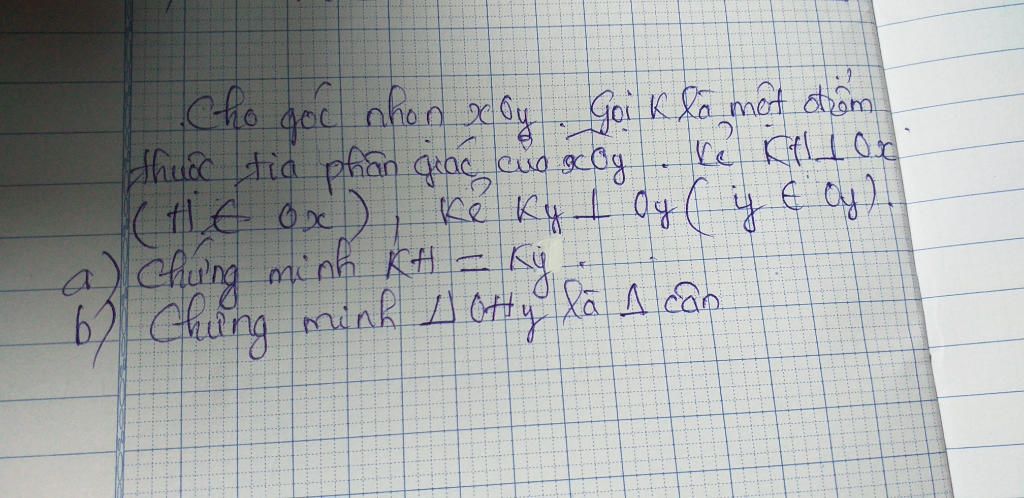 Cho góc nhọn xOy. Gọi K là một điểm
thuộc tia phân giác của xOy. Kẻ KH ⊥ Ox
(H ∈ Ox), Kẻ Ky ⊥ Oy (y ∈ Oy).
a) Chứng minh KH = Ky.
b) Chứng minh Δ OHy là Δ cân